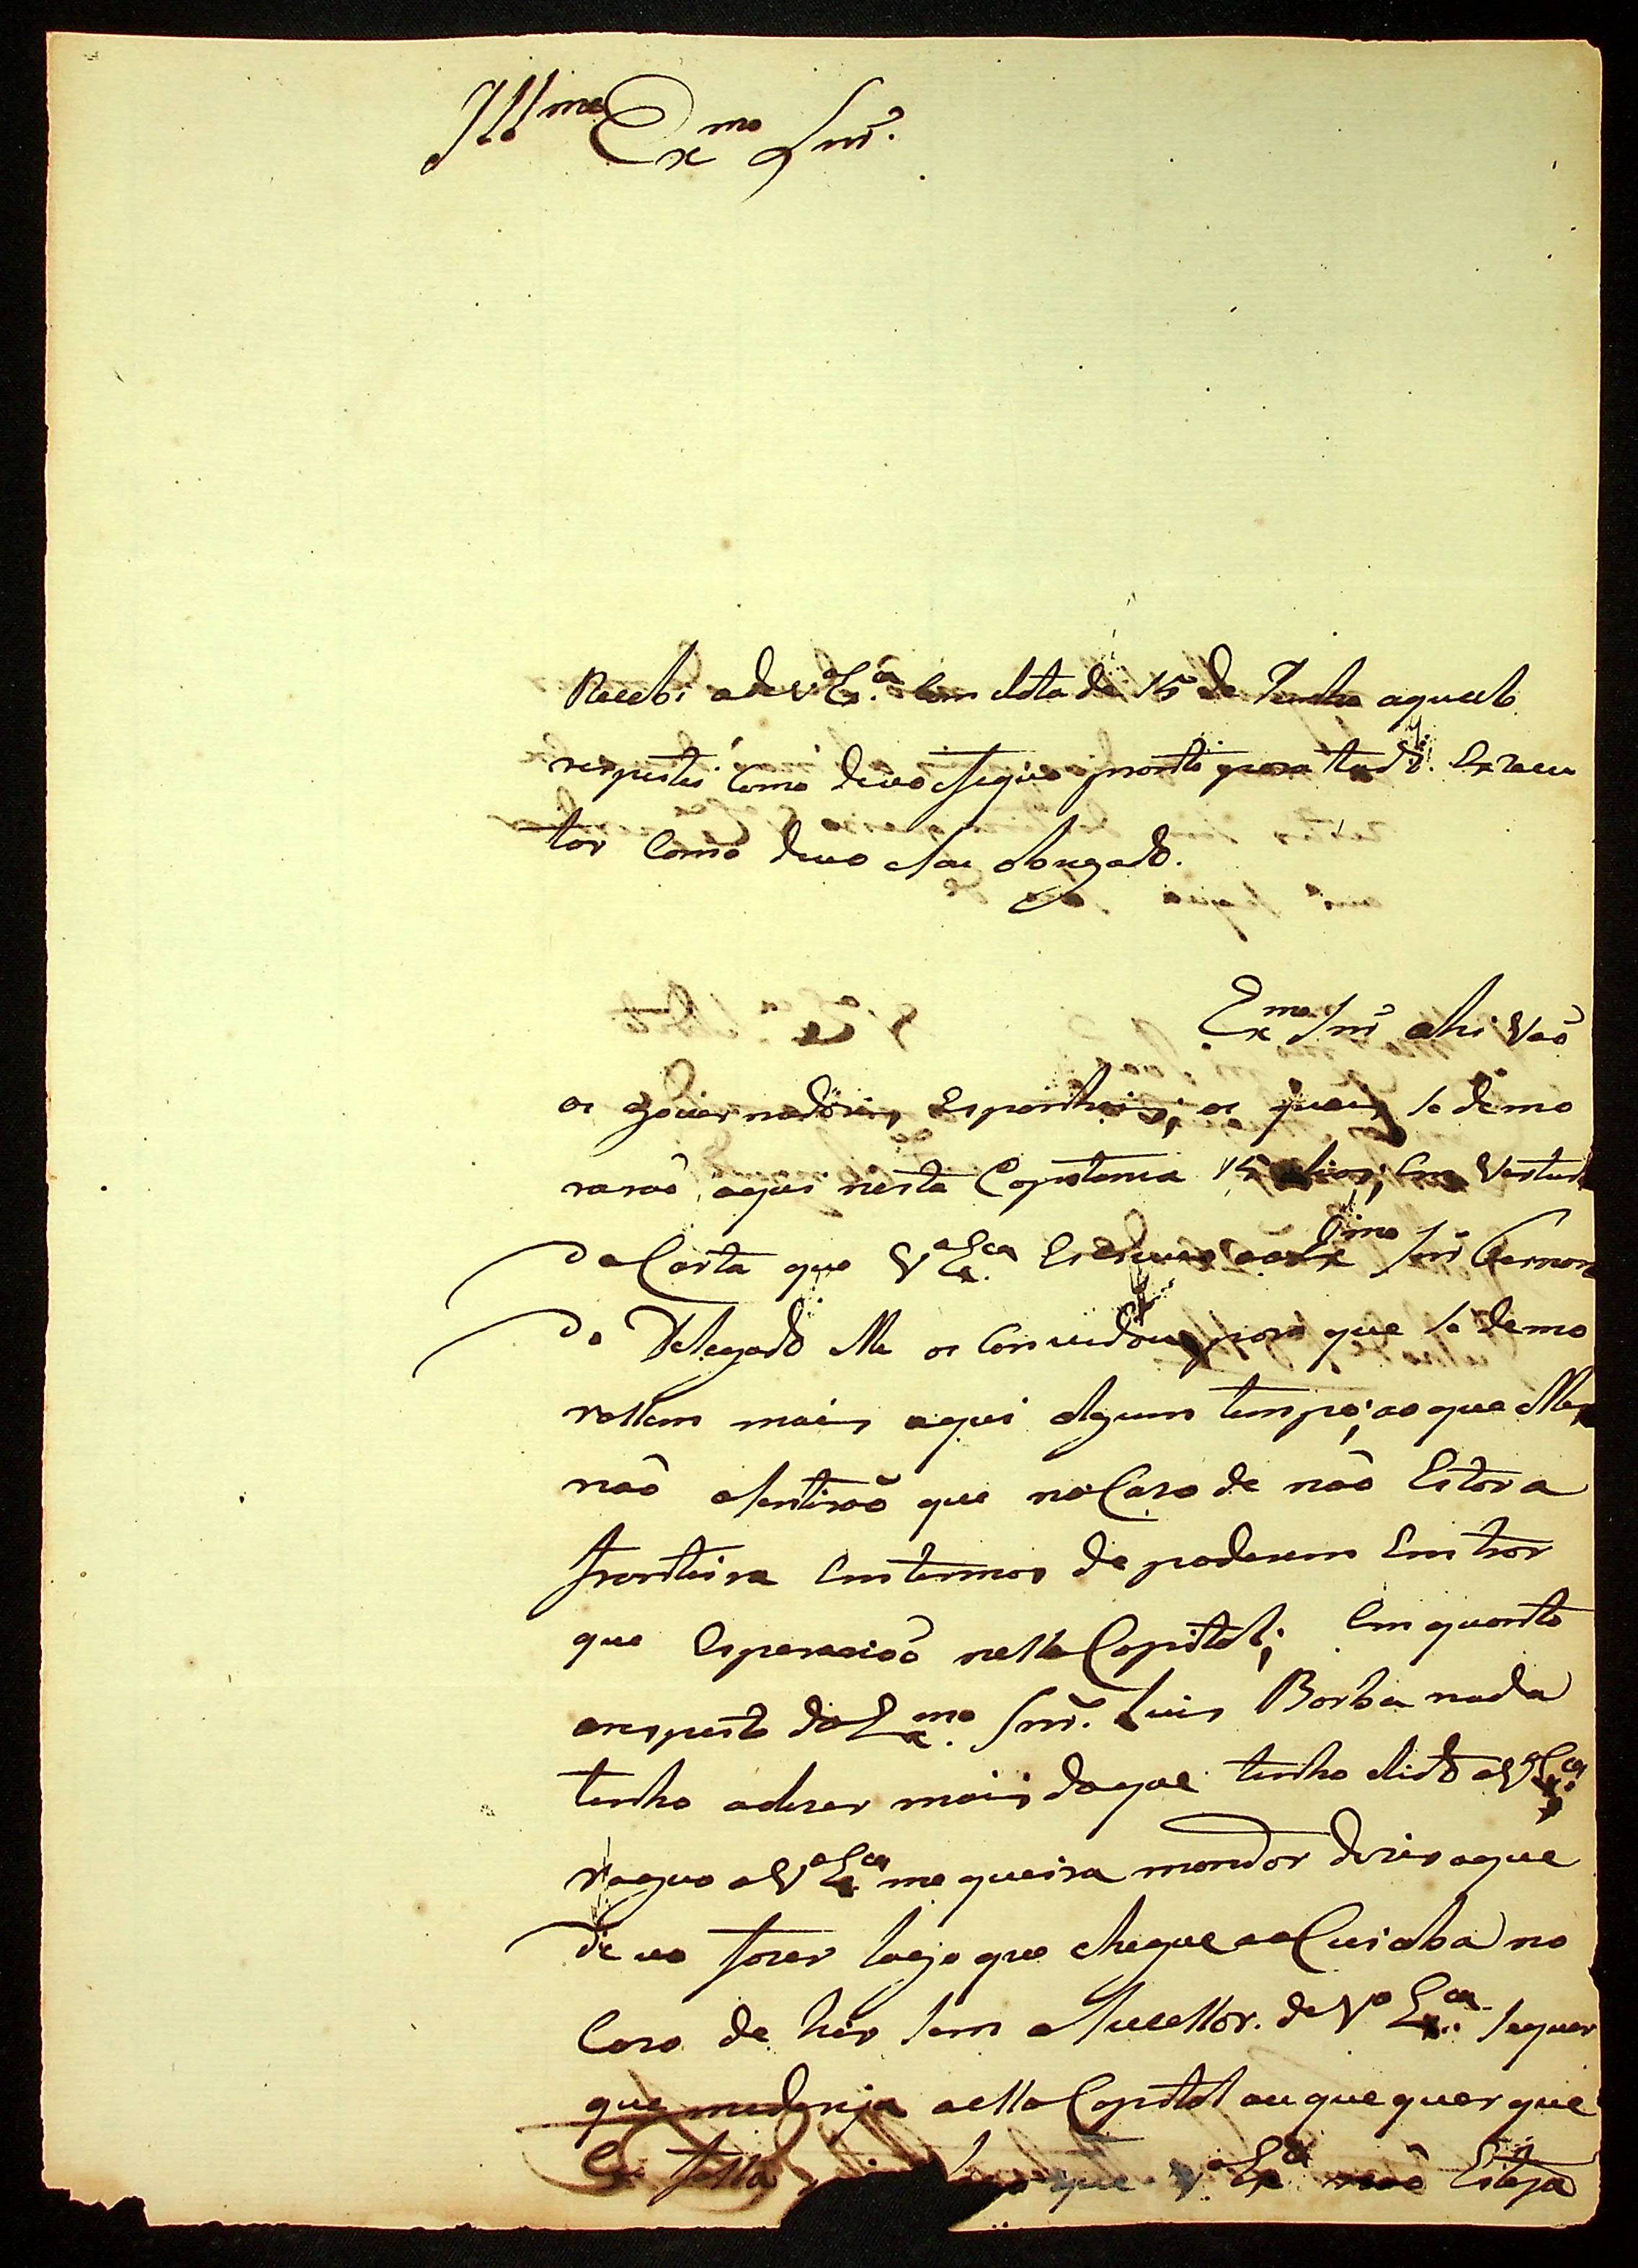 Illmo Exmo Snr.
Recebi a de V.a Ex.ca Com data de 15 de Junho aqual
respeitei Como devo e fico pronto para tudo Execu
tar Como devo e Sou obrigado.
Exmo Snr ahi Vaõ
os governadores espanhois; os quais Se demo
raraõ aqui nesta Capitania 15 dias; Em Vertude
da Carta que V.a Ex.ca Escreveo ao Exmo Snr Fernan
do Delegado Elle os Convidou para que Se demo
rassem mais aqui algum tempo; ao que Elles
naõ asentiraõ que no Caso de naõ Estar a
fronteira Em termos de poderem Entrar
que Esperariaõ nessa Capital; Em quanto
arespeito do Exmo Snr. Luis Barba nada
tenho adizer mais do que tenho dito a V.a Ex.ca
rogo a V.a Ex.ca me queira mandar dizer o que
devo fazer logo que chegue ao Cuiaba no
Caso de hir Sem o Sucessor de V.a Ex.ca Se quer
que me derija a essa Capital ou que quer que
que V.a Ex.ca naõ Esteja